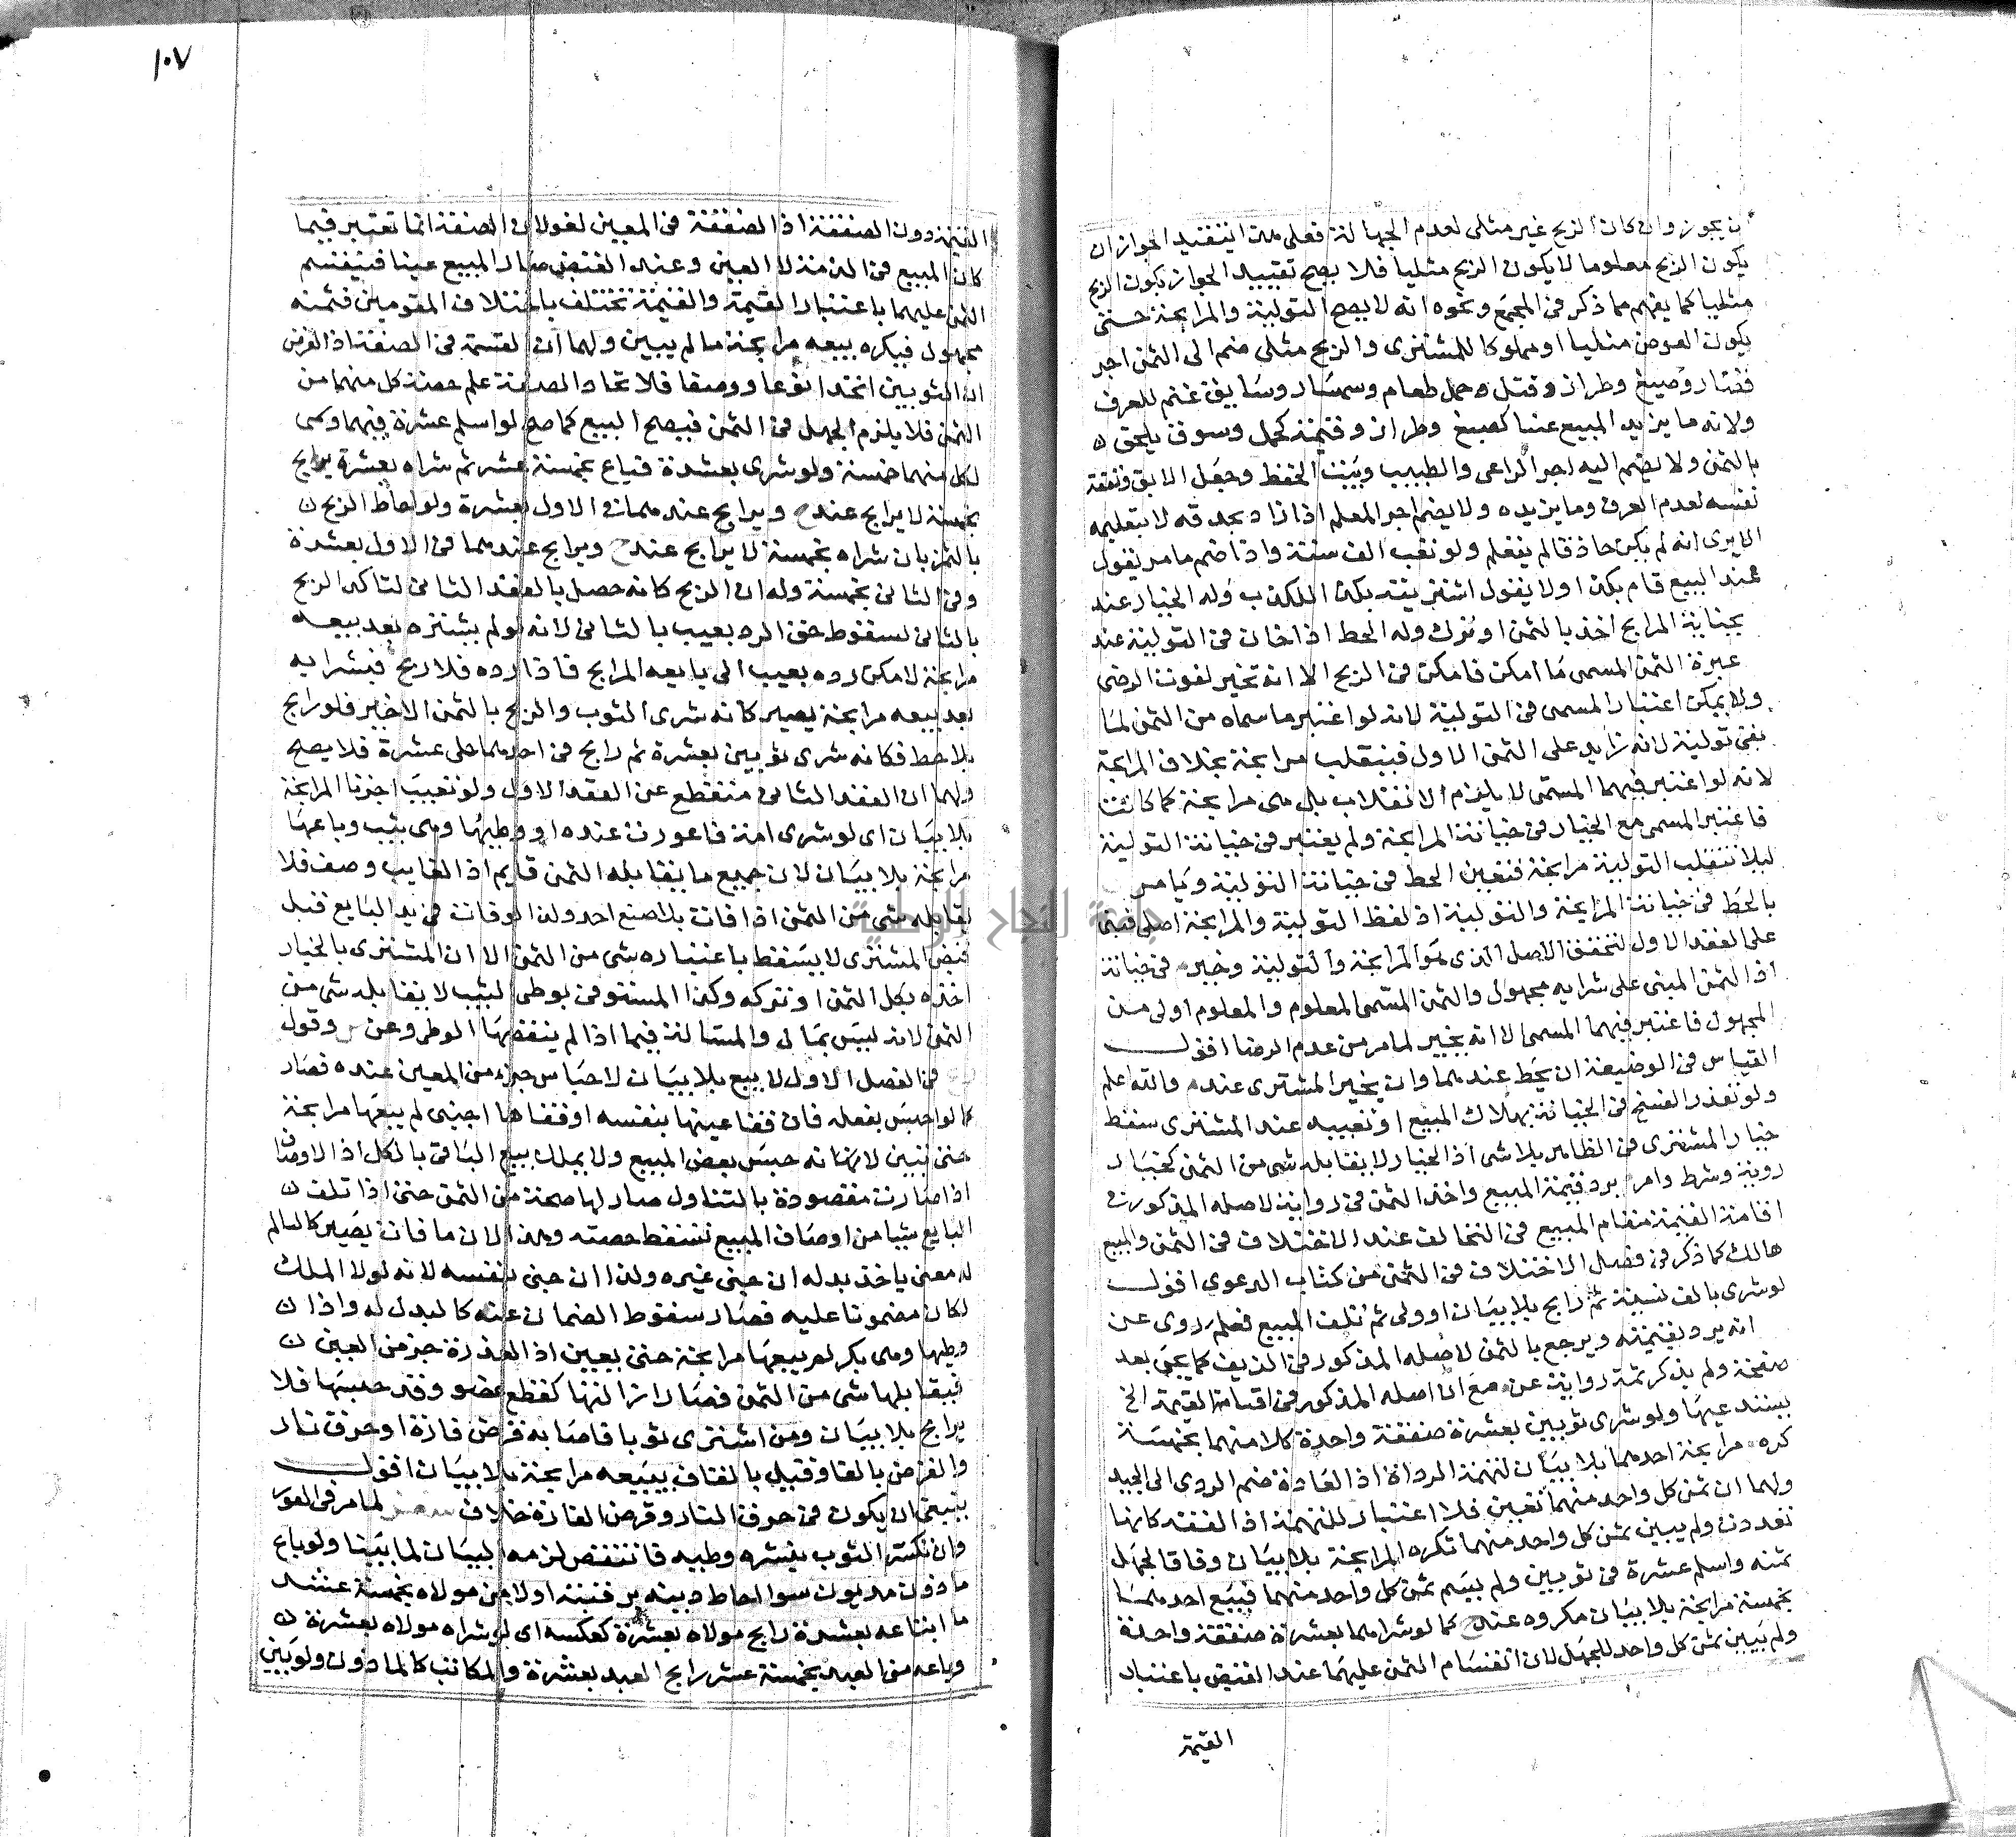 ان يجوز وان كان الربح غير مثلى لعدم الجهالة فعلى هذا ينبغى تقييد الجواز ان
يكون الربح معلوما لا يكون الربح مثليا فلا يصح تقييد الجواز بكون الربح
مثليا كما يفهم مما ذكر فى المجمع ونحوه انه لا يصح التولية والمرابحة حتى
يكون العوض مثليا او مملوكا للمشترى والربح مثلى ضم الى الثمن اجر
قصار وصبغ وطراز وفتل وحمل طعام وسمسار وسايق غنم للعرف
ولانه ما يزيد المبيع عينا كصبغ وطراز وقيمة كحمل وسوق يلحق
بالثمن ولا يضم اليه اجر الراعى والطبيب وبيت الحفظ وجعل الابق ونفقة
نفسه لعدم العرف وما يزيده ولا يضم اجر المعلم اذ ازداد بحذقه لا بتعليمه
الا يرى انه لم يكن حاذقا لم يتعلم ولو تعب الف سنة واذا ضم ما مر يقول
عند البيع قام بكذا ولا يقول اشتريته بكذا للكذب وله الخيار عند
بخيانة المرابح اخذ بالثمن او ترك وله الحط اذا خان فى التولية عند
عبرة الثمن المسمى ما امكن فامكن فى الربح الا انه تخير لفوت الرضى
ولا يمكن اعتبار المسمى فى التولية لانه لو اعتبر ما سماه من الثمن لما
بقى تولية لانه زايد على الثمن الاول فينقلب مرابحة بخلاف المرابحة
لانه لو اعتبر فيهما المسمى لا يلزم الانقلاب بل هى مرابحة كما كانت
فاعتبر المسمى مع الخيار فى خيانة المرابحة ولم يعتبر فى خيانة التولية
ليلا تنقلب التولية مرابحة فتعين الحط فى خيانة التولية ويامر
بالحط فى خيانة المرابحة والتولية اذ لفظ التولية والمرابحة اصل فبنى
على العقد الاول لتحقق الاصل الذى هو المرابحة والتولية وخير فى خيانة
اذ الثمن المبنى على شرايه مجهول والثمن المسمى المعلوم والمعلوم اولى من
المجهول فاعتبر فيهما المسمى الا انه يخير لما مر من عدم الرضا اقول
القياس فى الوضيعة ان يحط عندهما وان يخير المشترى عنده والله اعلم
ولو تعذر الفسخ فى الخيانة بهلاك المبيع او تعييبه عند المشترى سقط
خيار المشترى فى الظاهر بلا شى اذ الخيار لا يقابله شى من الثمن كخيار
روية وشرط وامر برد قيمة المبيع واخذ الثمن فى رواية لاصله المذكور فى
اقامة القيمة مقام المبيع فى التحالف عند الاختلاف فى الثمن والمبيع
هالك كما ذكر فى فصل الاختلاف فى الثمن من كتاب الدعوى اقول
لو شرى بالف نسيئة ثم رابح بلا بيان او ولى ثم تلف المبيع فعلم روى عن
انه يرد بقيمته ويرجع بالثمن لاصله المذكور فى الزيف كما يجى بعد
صفحة ولم يذكر ثمة رواية عن مع ان اصله المذكور فى اقامة القيمة الخ
يستدعيها ولو شرى ثوبين بعشرة صفقة واحدة كلا منهما بخمسة
كره مرابحة احدهما بلا بيان لتهمة الرداة اذ العادة ضم الردى الى الجيد
ولهما ان ثمن كل واحد منهما تعين فلا اعتبار للتهمة اذ العقد كانها
تعددت ولم يبين ثمن كل واحد منهما تكره المرابحة بلا بيان وفاقا لجهل
ثمنه واسلم عشرة فى ثوبين ولم يسم ثمن كل واحد منهما فبيع احدهما
بخمسة مرابحة بلا بيان مكروه عند كما لو شراهما بعشرة صفقة واحدة
ولم يبين ثمن كل واحد للجهل لان انقسام الثمن عليهما عند القبض باعتبار
القيمة
١٠٧
القيمة دون الصفقة اذ الصفقة فى المعين لغو لان الصفقة انما تعتبر فيما
كان المبيع فى الذمة لا العين وعند القبض صار المبيع عينا فينقسم
الثمن عليهما باعتبار القيمة والقيمة تختلف باختلاف المقومين فثمنه
مجهول فيكره بيعه مرابحة ما لم يبين ولهما ان القسمة فى الصفقة اذ الفرض
ان الثوبين اتحدا نوعا ووصفا فلاتحاد الصفقة علم حصة كل منهما من
الثمن فلا يلزم الجهل فى الثمن فيصح البيع كما صح لو اسلم عشرة فيهما وسمى
لكل منهما خمسة ولو شرى بعشرة فباع بخمسة عشر ثم شراه بعشرة يرابح
بخمسة لا يرابح عند ويرابح عندهما فى الاول بعشرة ولو احاط الربح
بالثمن بان شراه بخمسة لا يرابح عند ويرابح عندهما فى الاول بعشرة
وفى الثانى بخمسة وله ان الربح كانه حصل بالعقد الثانى لتاكد الربح
بالثانى لسقوط حق الرد بعيب بالثانى لانه لو لم يشتره بعد بيعه
مرابحة لامكن رده بعيب الى بايعه المرابح فاذا رده فلا ربح فبشرايه
بعد بيعه مرابحة يصير كانه شرى الثوب والربح بالثمن الاخير فلو رابح
بلا حط فكانه شرى ثوبين بعشرة ثم رابح فى احدهما على عشرة فلا يصح
ولهما ان العقد الثانى منقطع عن العقد الاول ولو تعيب اجزنا المرابحة
بلا بيان اى لو شرى امة فاعورت عنده او وطيها وهى ثيب وباعها
مرابحة بلا بيان لان جميع ما يقابله الثمن قايم اذ الفايت وصف فلا
يقابله شى من الثمن اذا فات بلا صنع احد ولذا لو فات فى يد البايع قبل
قبض المشترى لا يسقط باعتباره شى من الثمن الا ان المشترى بالخيار
اخذه بكل الثمن او تركه وكذا المستوفى بوطى الثيب لا يقابله شى من
الثمن لانه ليس بمال والمسالة فيما اذا لم ينقصها الوطى وعن وقول
فى الفصل الاول لا يبيع بلا بيان لاحتباس جزء من المعين عنده فصار
كما لو احتبس بفعله فان فقا عينها بنفسه او فقاها اجنبى لم يبعها مرابحة
حتى يبين لانه حبس بعض المبيع ولا يملك بيع الباقى بالكل اذ الاوصاف
اذا صارت مقصودة بالتناول صار لها حصة من الثمن حتى اذا تلف
البايع شيا من اوصاف المبيع تسقط حصته وهذا لان ما فات يصير كالسالم
له معنى ياخذ بدله ان جنى غيره ولذا ان جنى بنفسه لانه لولا الملك
لكان مضمونا عليه فصار سقوط الضمان عنه كالبدل له واذا
وطيها وهى بكر لم يبعها مرابحة حتى يبين اذ العذرة جز من العين
فيقابلها شى من الثمن فصار ازالتها كقطع عضو وقد حبسها فلا
يرابح بلا بيان ومن اشترى ثوبا فاصابه قرض فارة او حرق نار
والقرض بالقاف وقيل بالفاء يبيعه مرابحة بلا بيان اقول
ينبغى ان يكون فى حرق النار وقرض الفارة خلاف لما مر فى العور
وان تكسر الثوب بنشره وطيه فانتقص لزمه البيان لما بينا ولو باع
ماذون مديون سوا احاط دينه برقبته اولا من مولاه بخمسة عشر
ما ابتاعه بعشرة رابح مولاه بعشرة كعكسه اى لو شراه مولاه بعشرة
وباعه من العبد بخمسة عشر رابح العبد بعشرة والمكاتب كالماذون ولو بين